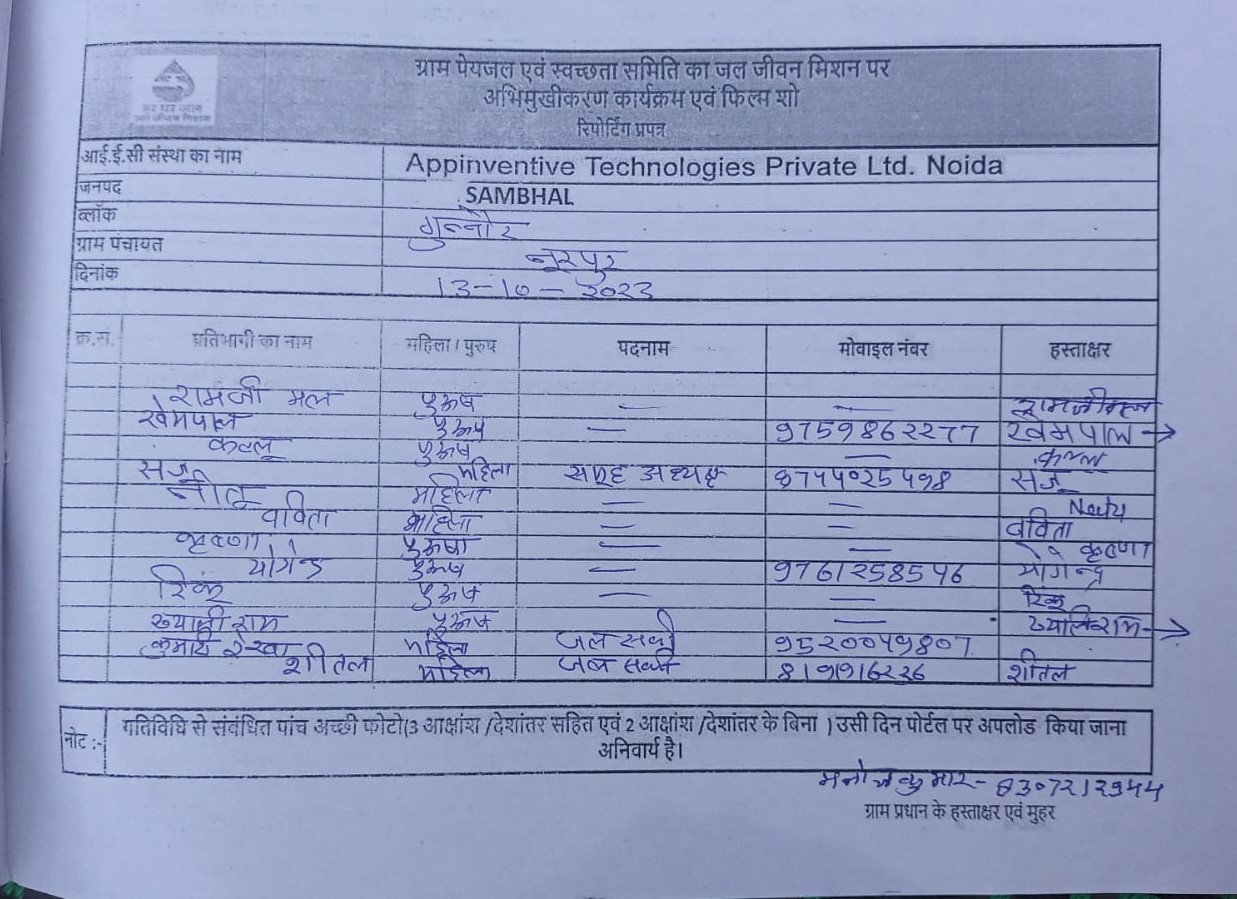 हर घर जल
जल जीवन मिशन
ग्राम पेयजल एवं स्वच्छता समिति का जल जीवन मिशन पर
अभिमुखीकरण कार्यक्रम एवं फिल्म शो
रिपोर्टिंग प्रपत्र
आई.ई.सी संस्था का नाम Appinventive Technologies Private Ltd. Noida
जनपद SAMBHAL
ब्लॉक गुन्नौर
ग्राम पंचायत नूरपुर
दिनांक 13-10-2023
क्र.सं. प्रतिभागी का नाम महिला / पुरुष पदनाम मोबाइल नंबर हस्ताक्षर
रामजी मल पुरूष — — रामजीमल
खेमपाल पुरूष — 9759862277 खेमपाल →
कल्लू पुरूष — कल्लू
संजू महिला समूह अध्यक्ष 8744025498 संजू
नीतू महिला — — Neetu
बविता महिला — — बविता
कृष्णा पुरूष — — कृष्णा
योगेन्द्र पुरूष — 9761258546 योगेन्द्र
रिंकू पुरूष — — रिंकू
ख्याली राम पुरूष — ख्यालीराम →
कुमारी रेखा महिला जल सखी 9520049807
शीतल महिला जल सखी शीतल
नोट :- गतिविधि से संबंधित पांच अच्छी फोटो(3 आक्षांश /देशांतर सहित एवं 2 आक्षांश /देशांतर के बिना ) उसी दिन पोर्टल पर अपलोड किया जाना
अनिवार्य है।
मनोज कुमार- 8307212944
ग्राम प्रधान के हस्ताक्षर एवं मुहर